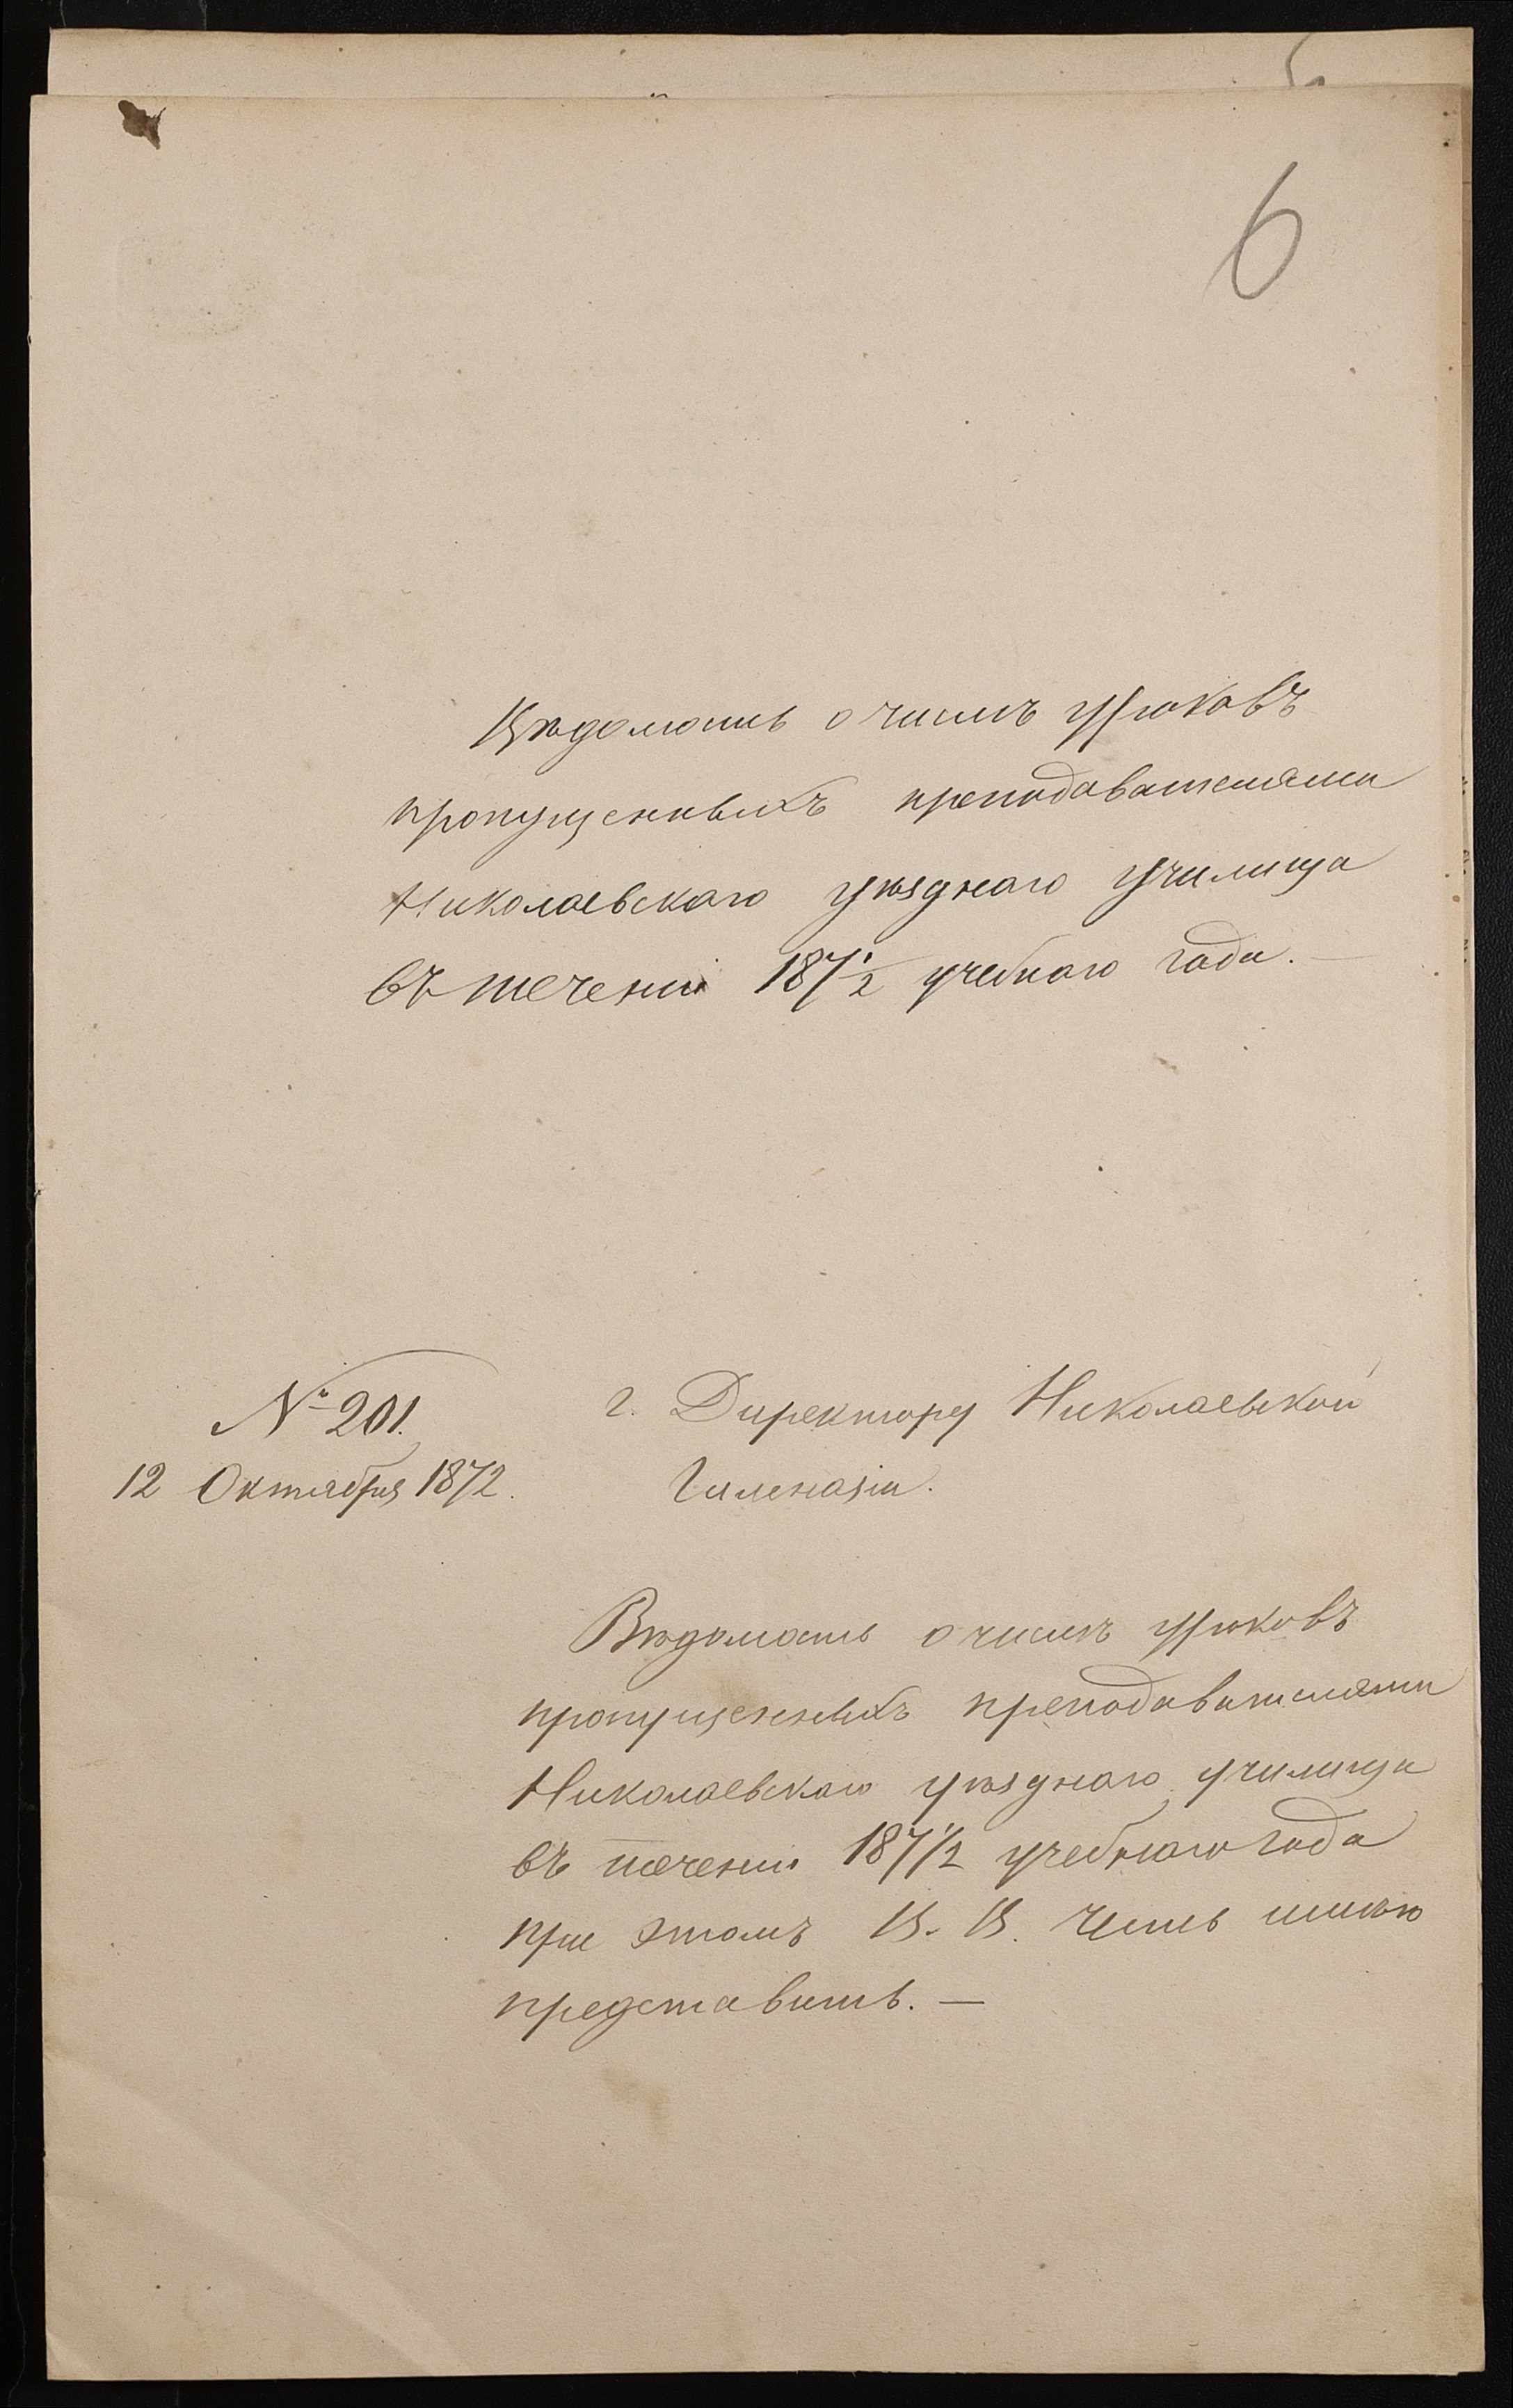 6
Вѣдомость о числѣ уроковъ
пропущенныхъ преподавателями
Николаевскаго уѣзднаго училища
въ теченіи 187½ учебнаго года. —
№ 201.
12 Октября 1872.
г. Директору Николаевской
Гимназіи.
Вѣдомость о числѣ уроковъ
пропущенныхъ преподавателями
Николаевскаго уѣзднаго училища
въ теченіи 187½ учебнаго года
при этомъ В. В. честь имѣю
представить. —